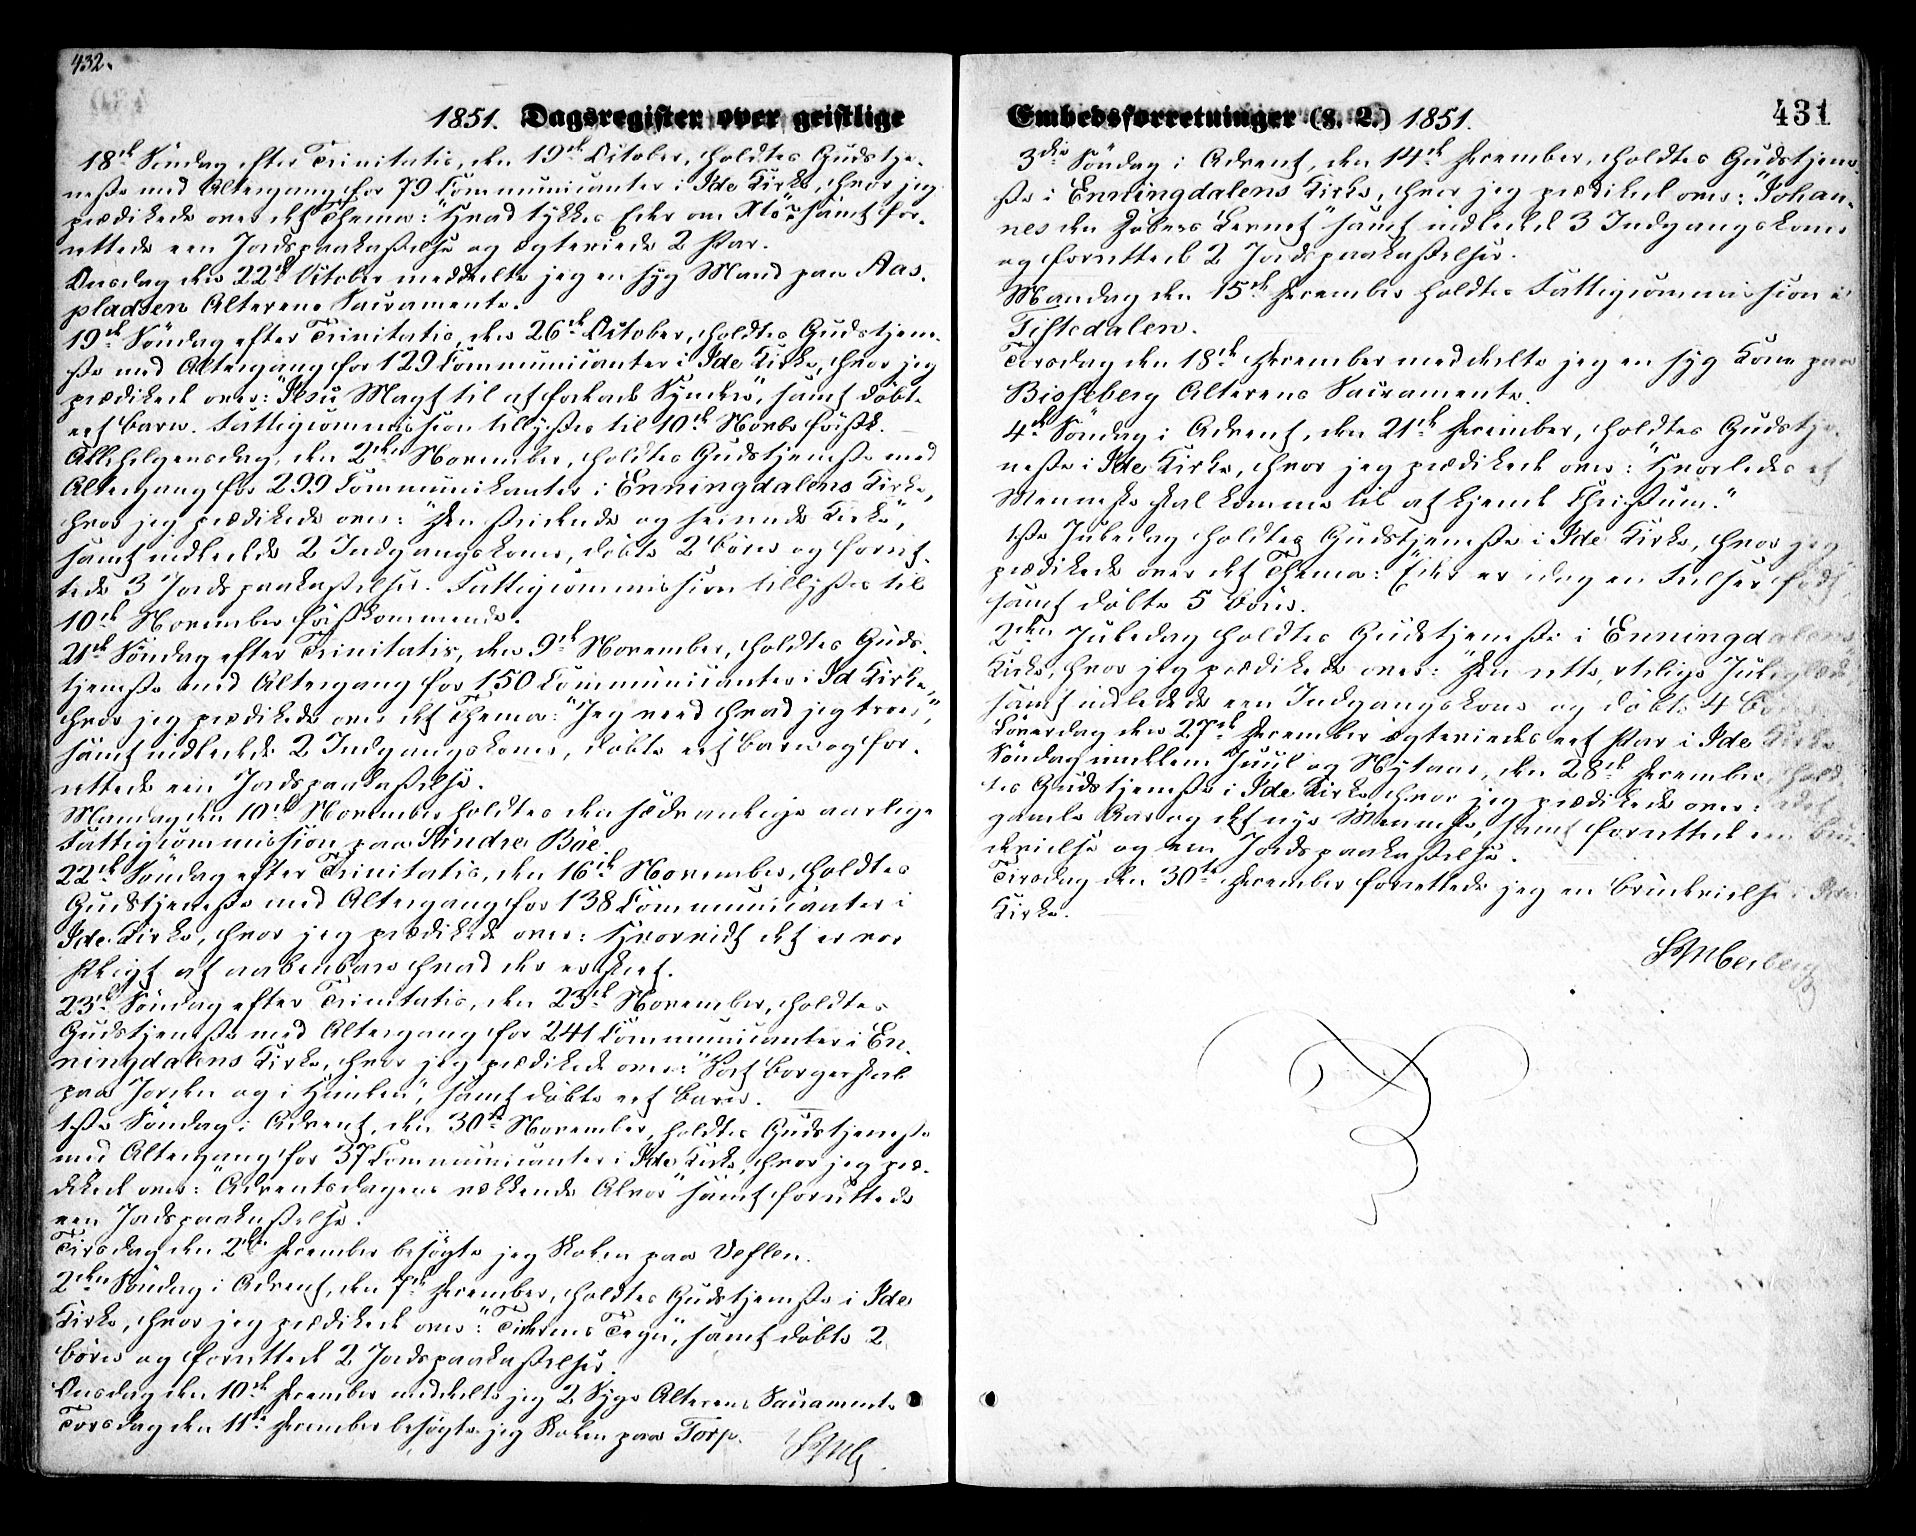 432.
1851. Dagsregister over geistlige
18de Søndag efter Trinitatis, den 19de October, holdtes Gudstje-
neste med Altergang for 79 Communicanter i Ide Kirke, hvor jeg
prædikede over det Thema: "Hvad tykkes Eder om Xto" samt for-
rettede een Jordspaakastelse og ægteviede 2 Par.
Onsdag den 22de October meddeelte jeg en syg Mand paa Aas-
pladsen Alterens Sacramente.
19de Søndag efter Trinitatis, den 26de October, holdtes Gudstjene-
ste med Altergang for 129 Communicanter i Ide Kirke, hvor jeg
prædikede over: "Jesu Magt til at forlade Synder", samt døbte
eet Barn. Fattigcommission tillystes til 10de Novbr førstk.
Allehelgensdag, den 2den November, holdtes Gudstjeneste med
Altergang for 299 Communikanter i Enningdalens Kirke,
hvor jeg prædikede over: "Den stridende og seirende Kirke",
samt indledede 2 Indgangskoner, døbte 2 Børn og forret-
tede 3 Jordspaakastelser. Fattigcommission tillystes til
10de November førstkommende.
21de Søndag efter Trinitatis, den 9de November, holdtes Guds-
tjeneste med Altergang for 150 Communicanter i Id Kirke,
hvor jeg prædikede over det Thema: "Jeg veed hvad jeg troer",
samt indledede 2 Indgangskoner, døbte eet Barn og for-
rettede een Jordspaakastelse.
Mandag den 10de November holdtes den sædvanlige aarlige
Fattigcommission paa Søndre Bøe.
22de Søndag efter Trinitatis, den 16de November, holdtes
Gudstjeneste med Altergang for 138 Communicanter i
Ide Kirke, hvor jeg prædikede over: Hvorvidt det er vor
Pligt at aabenbare hvad der er skeet.
23de Søndag efter Trinitatis, den 23de November, holdtes
Gudstjeneste med Altergang for 241 Communicanter i En-
ningdalens Kirke, hvor jeg prædikede over: "Vort Borgerskab
paa Jorden og i Himlen", samt døbte eet Barn.
1ste Søndag i Advent, den 30te November, holdtes Gudstjeneste
med Altergang for 37 Communicanter i Ide Kirke, hvor jeg præ-
dikede over: "Adventsdagens vækkende Alvor" samt forrettede
een Jordspaakastelse.
Tirsdag den 2den December besøgte jeg Skolen paa Veflen.
2den Søndag i Advent, den 7de December, holdtes Gudstjeneste i Ide
Kirke, hvor jeg prædikede over: "Tidernes Tegn", samt døbte 2
Børn og forrettede 2 Jordspaakastelser.
Onsdag den 10de December meddeelte jeg 2 Syge Alterens Sacramente
Torsdag den 11te December besøgte jeg Skolen paa Torp.
Embedsforretninger (§. 2.) 1851.
431
3die Søndag i Advent, den 14de December, holdtes Gudstjene-
ste i Enningdalens Kirke, hvor jeg prædikede over: "Johan-
nes den Døbers Lærend" samt indledede 3 Indgangskoner
og forrettede 2 Jordspaakastelser.
Mandag den 15de December holdtes Fattigcommission i
Tistedalen.
Torsdag den 18de December meddeelte jeg en syg Kone paa
Bisseberg Alterens Sacramente.
4de Søndag i Advent, den 21de December, holdtes Gudstje-
neste i Ide Kirke, hvor jeg prædikede over: "Hvorledes et
Menneske skal komme til at kjende Christum."
1ste Juledag holdtes Gudstjeneste i Ide Kirke, hvor jeg
prædikede over det Thema: "Eder er idag en Frelser født,"
samt døbte 5 Børn.
2den Juledag holdtes Gudstjeneste i Enningdalens
Kirke, hvor jeg prædikede over: "Den rette christelige Juleglæde",
samt indledede een Indgangskone og døbte 4 Børn.
Løverdag den 27de December ægteviedes eet Par i Ide Kirke.
Søndag imellem Juul og Nytaar, den 28de December, hold-
tes Gudstjeneste i Ide Kirke, hvor jeg prædikede over: det
gamle Aar og det nye Menneske, samt forrettede een Bru-
devielse og een Jordspaakastelse.
Tirsdag den 30te December forrettede jeg en Brudevielse i Ide
Kirke.